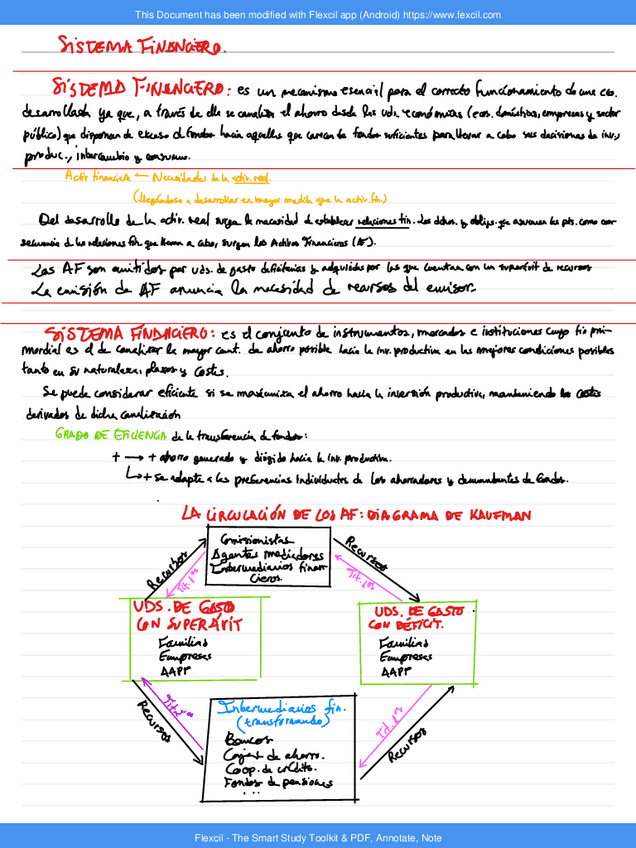 This Document has been modified with Flexcil app (Android) https://www.fexcil.com
SISTEMA FINANCIERO.
SISTEMA FINANCIERO: es un mecanismo esencial para el correcto funcionamiento de una eco.
desarrollada ya que, a través de ella se canaliza el ahorro desde las uds. económicas (eas. domésticas, empresas y sector
público) que disponen de exceso de fondos hacia aquellas que carecen de fondos suficientes para llevar a cabo sus decisiones de inv.,
produc., intercambio y consumo.
Activ financiera ← Necesidades de la activ. real.
(llegándose a desarrollar en mayor medida que la activ. fin.)
Del desarrollo de la activ. real surgen la necesidad de establecer relaciones fin. Los dchos. y obligs. que asumen las pts. como con-
secuencia de las relaciones fin. que llevan a cabo, surgen los Activos Financieros (AF).
Los AF son emitidos por uds. de gasto deficitarias y adquiridos por las que cuentan con un superávit de recursos
La emisión de AF anuncia la necesidad de recursos del emisor.
SISTEMA FINANCIERO: es el conjunto de instrumentos, mercados e instituciones cuyo fin pri-
mordial es el de canalizar la mayor cant. de ahorro posible hacia la inv. productiva en las mejores condiciones posibles
tanto en su naturaleza, plazos y costes.
Se puede considerar eficiente si se maximiza el ahorro hacia la inversión productiva, manteniendo los costes
derivados de dicha canalización
GRADO DE EFICIENCIA de la transferencia de fondos:
+ → + ahorro generado y dirigido hacia la inv. productiva.
↳ + se adapte a las preferencias individuales de los ahorradores y demandantes de fondos.
LA CIRCULACIÓN DE LOS AF: DIAGRAMA DE KAUFMAN
Comisionistas
Agentes mediadores
Intermediarios finan-
cieros
Recursos
Tít. 1os
Recursos
Tít. 1os
UDS. DE GASTO
CON SUPERÁVIT
Familias
Empresas
AAPP
UDS. DE GASTO
CON DÉFICIT.
Familias
Empresas
AAPP
Intermediarios fin.
(transformando)
Bancos
Cajas de ahorro.
Coop. de crédito.
Fondos de pensiones
...
Recursos
Tít. 2os
Tít. 1os
Recursos
Flexcil - The Smart Study Toolkit & PDF, Annotate, Note